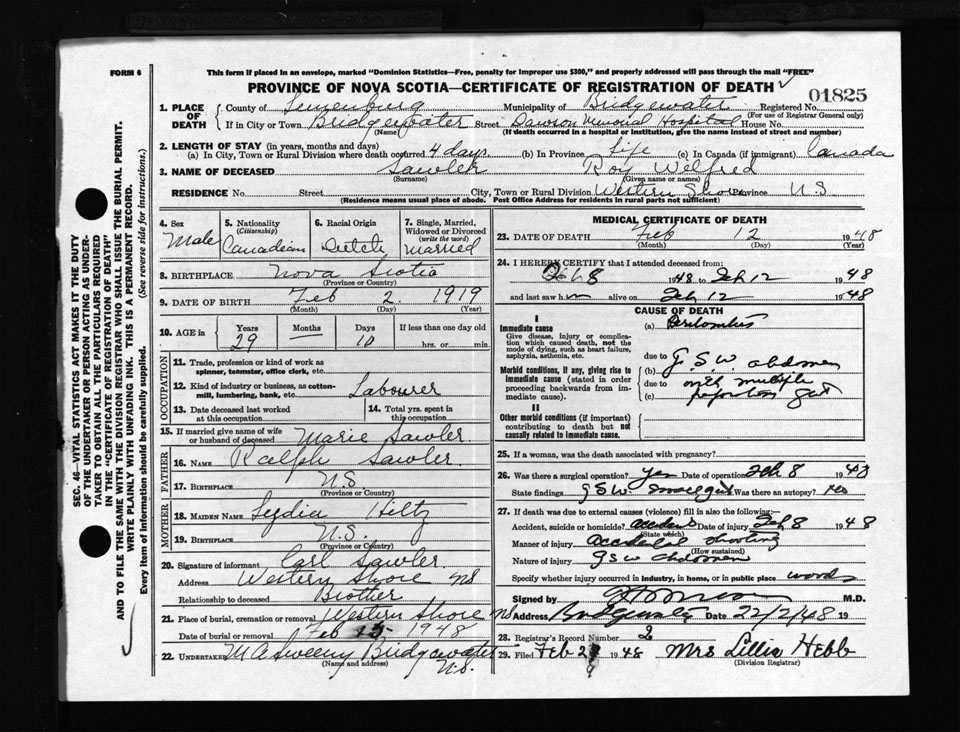 FORM 6
This form if placed in an envelope, marked "Dominion Statistics—Free, penalty for improper use $300," and properly addressed will pass through the mail "FREE"
PROVINCE OF NOVA SCOTIA—CERTIFICATE OF REGISTRATION OF DEATH
01825
1. PLACE OF DEATH
County of Lunenburg Municipality of Bridgewater Registered No.
(For use of Registrar General only)
If in City or Town Bridgewater Street Dawson Memorial Hospital House No.
(Name) (If death occurred in a hospital or institution, give the name instead of street and number)
2. LENGTH OF STAY (in years, months and days)
(a) In City, Town or Rural Division where death occurred 4 days (b) In Province Life (c) In Canada (if immigrant) Canada
3. NAME OF DECEASED Sawler Roy Welfred
(Surname) (Given name or names)
RESIDENCE No. Street City, Town or Rural Division Western Shore Province N.S
(Residence means usual place of abode. Post Office Address for Residents in rural parts not sufficient)
4. Sex Male
5. Nationality (Citizenship) Canadian
6. Racial Origin Dutch
7. Single, Married, Widowed or Divorced (write the word) Married
8. BIRTHPLACE Nova Scotia
(Province or Country)
9. DATE OF BIRTH Feb 2. 1919
(Month) (Day) (Year)
10. AGE in Years Months Days If less than one day old
29 — 10 hrs. or min.
OCCUPATION
11. Trade, profession or kind of work as spinner, teamster, office clerk, etc.
12. Kind of industry or business, as cotton-mill, lumbering, bank, etc. Labourer
13. Date deceased last worked at this occupation
14. Total yrs. spent in this occupation
15. If married give name of wife or husband of deceased Marie Sawler
FATHER
16. NAME Ralph Sawler.
17. BIRTHPLACE N.S
(Province or Country)
MOTHER
18. MAIDEN NAME Lydia Hiltz
19. BIRTHPLACE N.S.
(Province or Country)
20. Signature of informant Carl Sawler.
Address Western Shore NS
Relationship to deceased Brother
21. Place of burial, cremation or removal Western Shore NS
Date of burial or removal Feb 15 1948
22. UNDERTAKER M A Sweeny Bridgewater N.S.
(Name and address)
MEDICAL CERTIFICATE OF DEATH
23. DATE OF DEATH Feb 12 1948
(Month) (Day) (Year)
24. I HEREBY CERTIFY that I attended deceased from:
Feb 8 1948 to Feb 12 1948
and last saw him alive on Feb 12 1948
CAUSE OF DEATH
I
Immediate cause
Give disease, injury or complication which caused death, not the mode of dying, such as heart failure, asphyxia, asthenia, etc.
(a) Peritonitis
due to
Morbid conditions, if any, giving rise to immediate cause (stated in order proceeding backwards from immediate cause).
(b) G.S.W. abdomen
due to with multiple
(c)
II
Other morbid conditions (if important) contributing to death but not causally related to immediate cause.
25. If a woman, was the death associated with pregnancy?
26. Was there a surgical operation? yes Date of operation Feb 8 1948
State findings GSW. small gut Was there an autopsy?
27. If death was due to external causes (violence) fill in also the following:
Accident, suicide or homicide? accident Date of injury Feb 8 1948
(State which)
Manner of injury accidental shooting
(How sustained)
Nature of injury GSW abdomen
Specify whether injury occurred in industry, in home, or in public place woods
Signed by M.D.
Address Bridgewater Date 22/2/48 19
28. Registrar's Record Number 2
29. Filed Feb 1948 Mrs Lillie Hebb
(Division Registrar)
SEC. 46—VITAL STATISTICS ACT MAKES IT THE DUTY
OF THE UNDERTAKER OR PERSON ACTING AS UNDERTAKER TO OBTAIN ALL THE PARTICULARS REQUIRED
IN THE "CERTIFICATE OF REGISTRATION OF DEATH"
AND TO FILE THE SAME WITH THE DIVISION REGISTRAR WHO SHALL ISSUE THE BURIAL PERMIT.
WRITE PLAINLY WITH UNFADING INK. THIS IS A PERMANENT RECORD.
Every item of information should be carefully supplied. (See reverse side for instructions.)